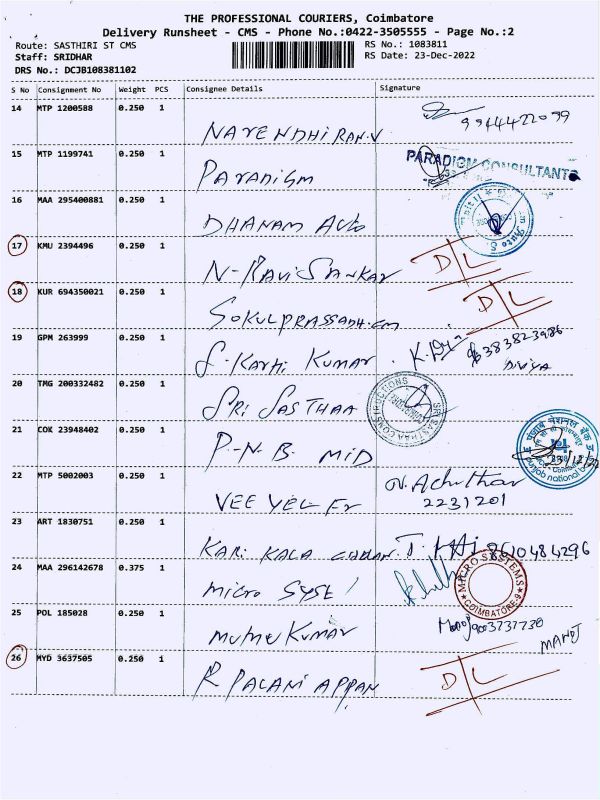 THE PROFESSIONAL COURIERS, Coimbatore
Delivery Runsheet - CMS - Phone No.:0422-3505555 - Page No.:2
Route: SASTHIRI ST CMS
RS No.: 1083811
Staff: SRIDHAR
RS Date: 23-Dec-2022
DRS No.: DCJB108381102
S No Consignment No Weight PCS Consignee Details Signature
14 MTP 1200588 0.250 1
NARENDHIRAN.V 9944422099
15 MTP 1199741 0.250 1
Paradigm PARADIGM CONSULTANTS
16 MAA 295400881 0.250 1
DHANAM Auto
17 KMU 2394496 0.250 1
N-RaviSankar D/L
18 KUR 694350021 0.250 1
GOKULPRASSADH.CM D/L
19 GPM 263999 0.250 1
S. Karthi Kumar 8383823986
DIVIYA
20 TMG 200332482 0.250 1
SRI SASTHAA SRI SASTHAA CONSTRUCTIONS
21 COK 23948402 0.250 1
P-N-B MID punjab national
22 MTP 5002003 0.250 1
VEE YEL 2231201
23 ART 1830751 0.250 1
KARI KALA 8610484296
24 MAA 296142678 0.375 1
micro SYSE MICRO SYSTEMS COIMBATORE-9
25 POL 185028 0.250 1
Muthu Kumar Manoj 9003737730
MANOJ
26 MYD 3637505 0.250 1
R PALANI APPAN D/L